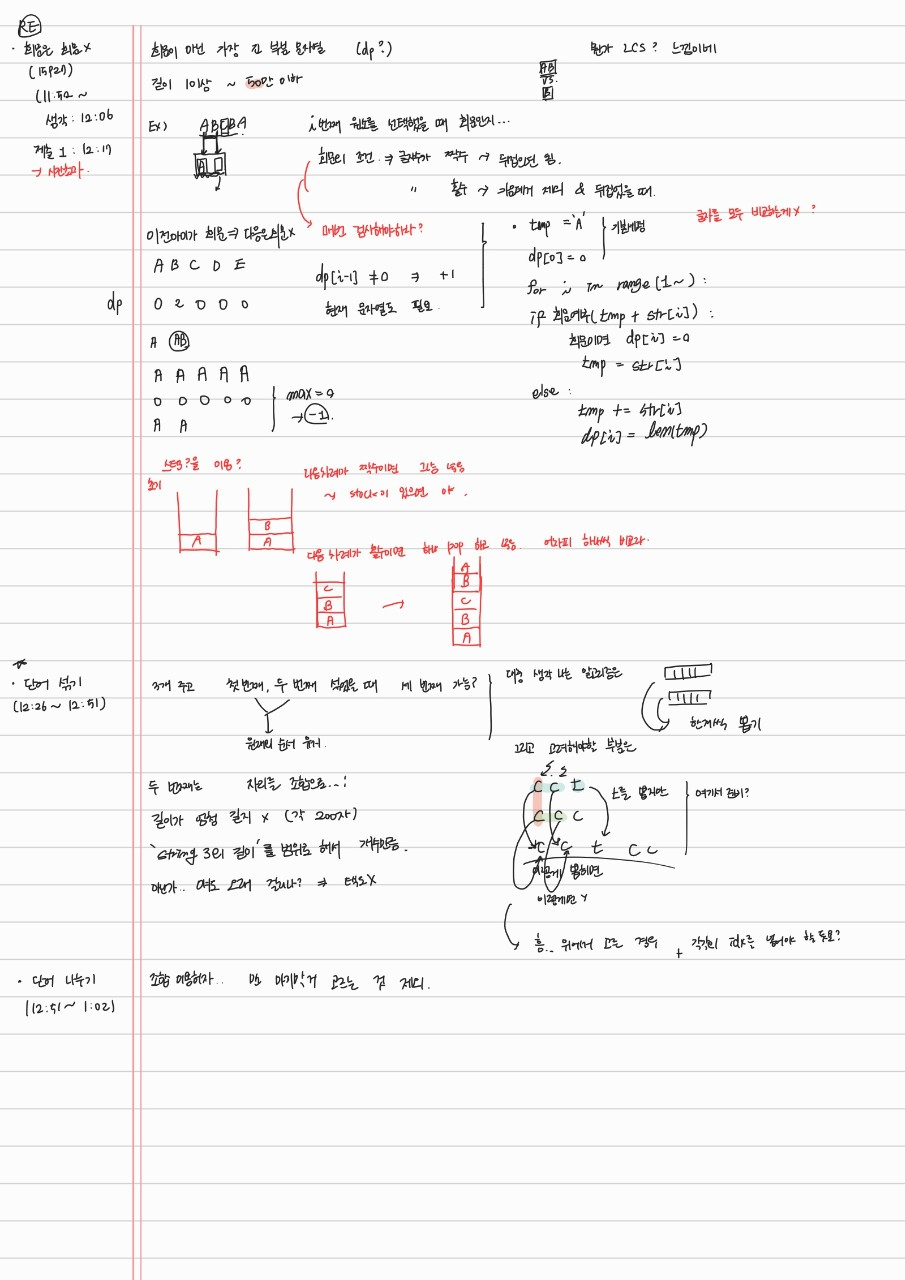 RE
· 회문은 회문 X
(15927)
(11:52 ~
생각 : 12:06
제출 1 : 12:17
→ 시간초과
회문이 아닌 가장 긴 부분 문자열 (dp?)
뭔가 LCS? 느낌이네
길이 1이상 ~ 50만 이하
AB
VS.
B
Ex) ABCBA
i번째 원소를 선택했을 때 회문인지...
회문의 조건 ⇒ 글자수가 짝수 → 뒤집으면 됨.
" 홀수 → 가운데거 제외 & 뒤집었을 때.
이전아이가 회문 ⇒ 다음은 회문 X
매번 검사해야하나?
A B C D E
dp[i-1] ≠0 ⇒ +1
dp 0 2 0 0 0
현재 문자열도 필요.
· tmp = 'A'
dp[0]=0
기본세팅
글자를 모두 비교하는게 X ?
for i in range(1~) :
if 회문여부(tmp + str[i]) :
회문이면 dp[i] =0
tmp = str[i]
else :
tmp += str[i]
dp[i] = len(tmp)
A AB
A A A A A
0 0 0 0 0
A A
max = 0
→ -1.
스택?을 이용?
다음차례가 짝수이면 그냥 넣음
~ stack이 있으면 야.
A
B
A
다음 차례가 홀수이면 하나 pop 하고 넣음. 어차피 하나씩 비교라.
C
B
A
→
A
B
C
B
A
· 단어 섞기
(12:26 ~ 12:51)
3개 주고 첫번째, 두 번째 섞었을 때 세 번째 가능?
원래의 순서 유지.
대충 생각 나는 알고리즘은
한개씩 뽑기
그리고 고려해야할 부분은
두 번째는 자리를 조합으로...;
길이가 엄청 길지 X (각 200자)
'string 3의 길이'를 범위로 해서 개수만큼.
아닌가.. 여도 오래 걸리나? ⇒ 택도X
c c t
c c c
c c t c c
t를 뽑지만
여기서 분기?
이렇게 뽑히면
이렇게면 Y
흠.. 위에서 고른 경우 + 각각의 idx를 넣어야 할 듯요?
· 단어 나누기
(12:51 ~ 1:02)
조합 이용하자.. 맨 마지막거 고르는 것 제외.